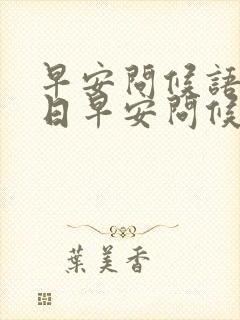 早安問候語
日早安問候
葉美香